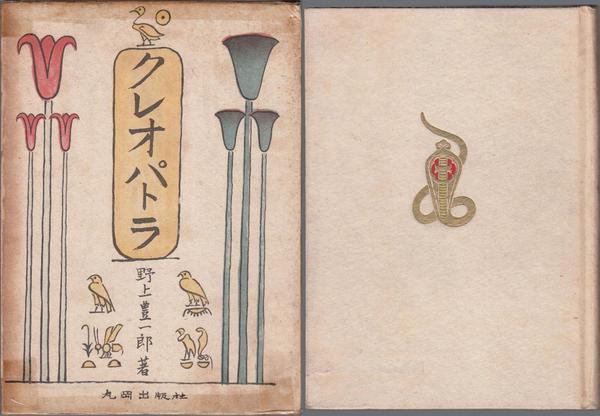 クレオパトラ
野上豊一郎著
丸岡出版社